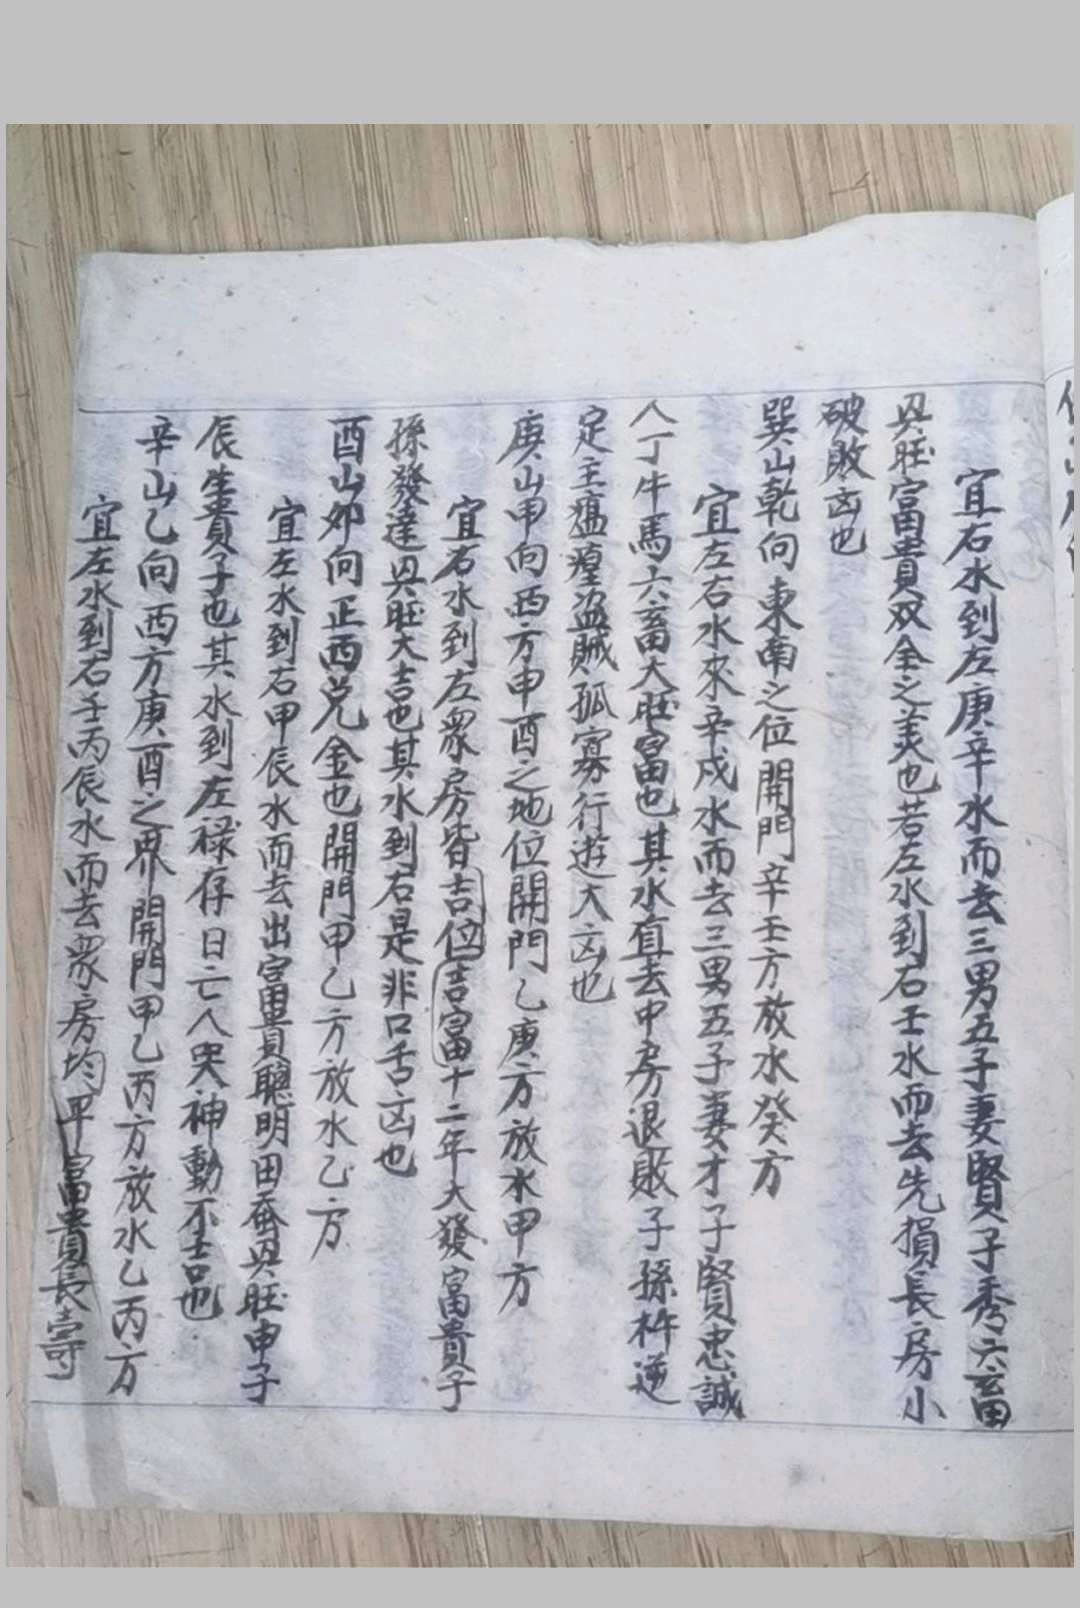 宜右水到左庚辛水而去三男五子妻賢子秀六畜
兴旺富貴双全之美也若左水到右壬水而去先損長房小
破敗凶也
巽山乾向東南之位開門辛壬方放水癸方
宜左右水來辛戍水而去三男五子妻才子賢忠誠
人丁牛馬六畜大旺富也其水直去中房退敗子孫忤逆
定主瘟瘽盜賊孤寡行遊大凶也
庚山甲向西方申酉之地位開門乙庚方放水甲方
宜右水到左衆房皆吉位吉富十二年大發富貴子
孫發達兴旺大吉也其水到右是非口舌凶也
酉山夘向正西兑金也開門甲乙方放水乙方
宜左水到右甲辰水而去出富貴聰明田蚕兴旺申子
辰生貴子也其水到左禄存日亡人哭神動不吉也
辛山乙向西方庚酉之界開門甲乙丙方放水乙丙方
宜左水到右壬丙辰水而去衆房均平富貴長壽